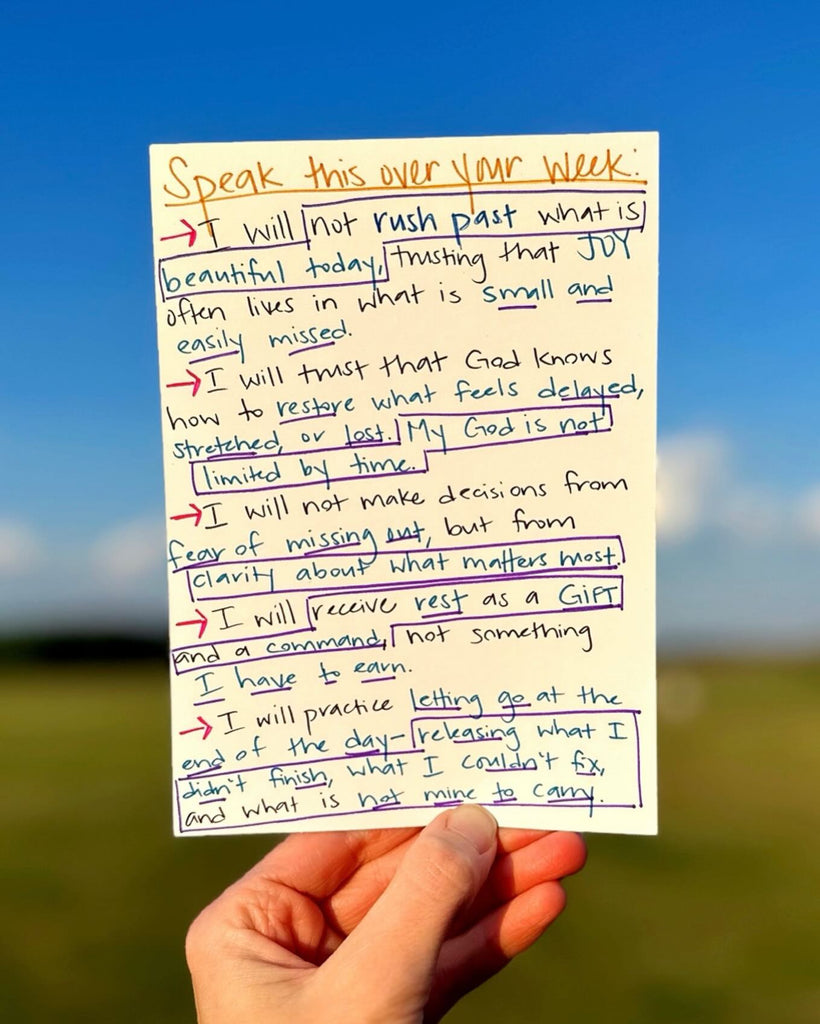 Speak this over your week:
→I will not rush past what is
beautiful today, trusting that JOY
often lives in what is small and
easily missed.
→I will trust that God knows
how to restore what feels delayed,
stretched, or lost. My God is not
limited by time.
→I will not make decisions from
fear of missing out, but from
clarity about what matters most.
→I will receive rest as a GIFT
and a command, not something
I have to earn.
→I will practice letting go at the
end of the day- releasing what I
didn't finish, what I couldn't fix,
and what is not mine to carry.